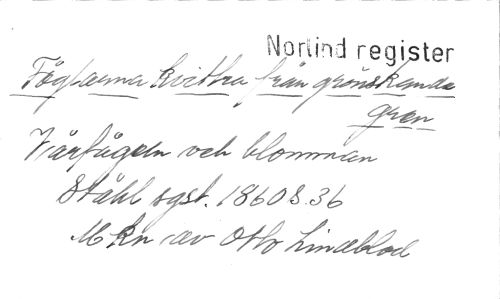 Norlind register
Foglarna kvittra från grönskande
gren
Vårfågeln och blomman
Ståhl sgst. 1860 S. 36
M kn av Otto Lindblad